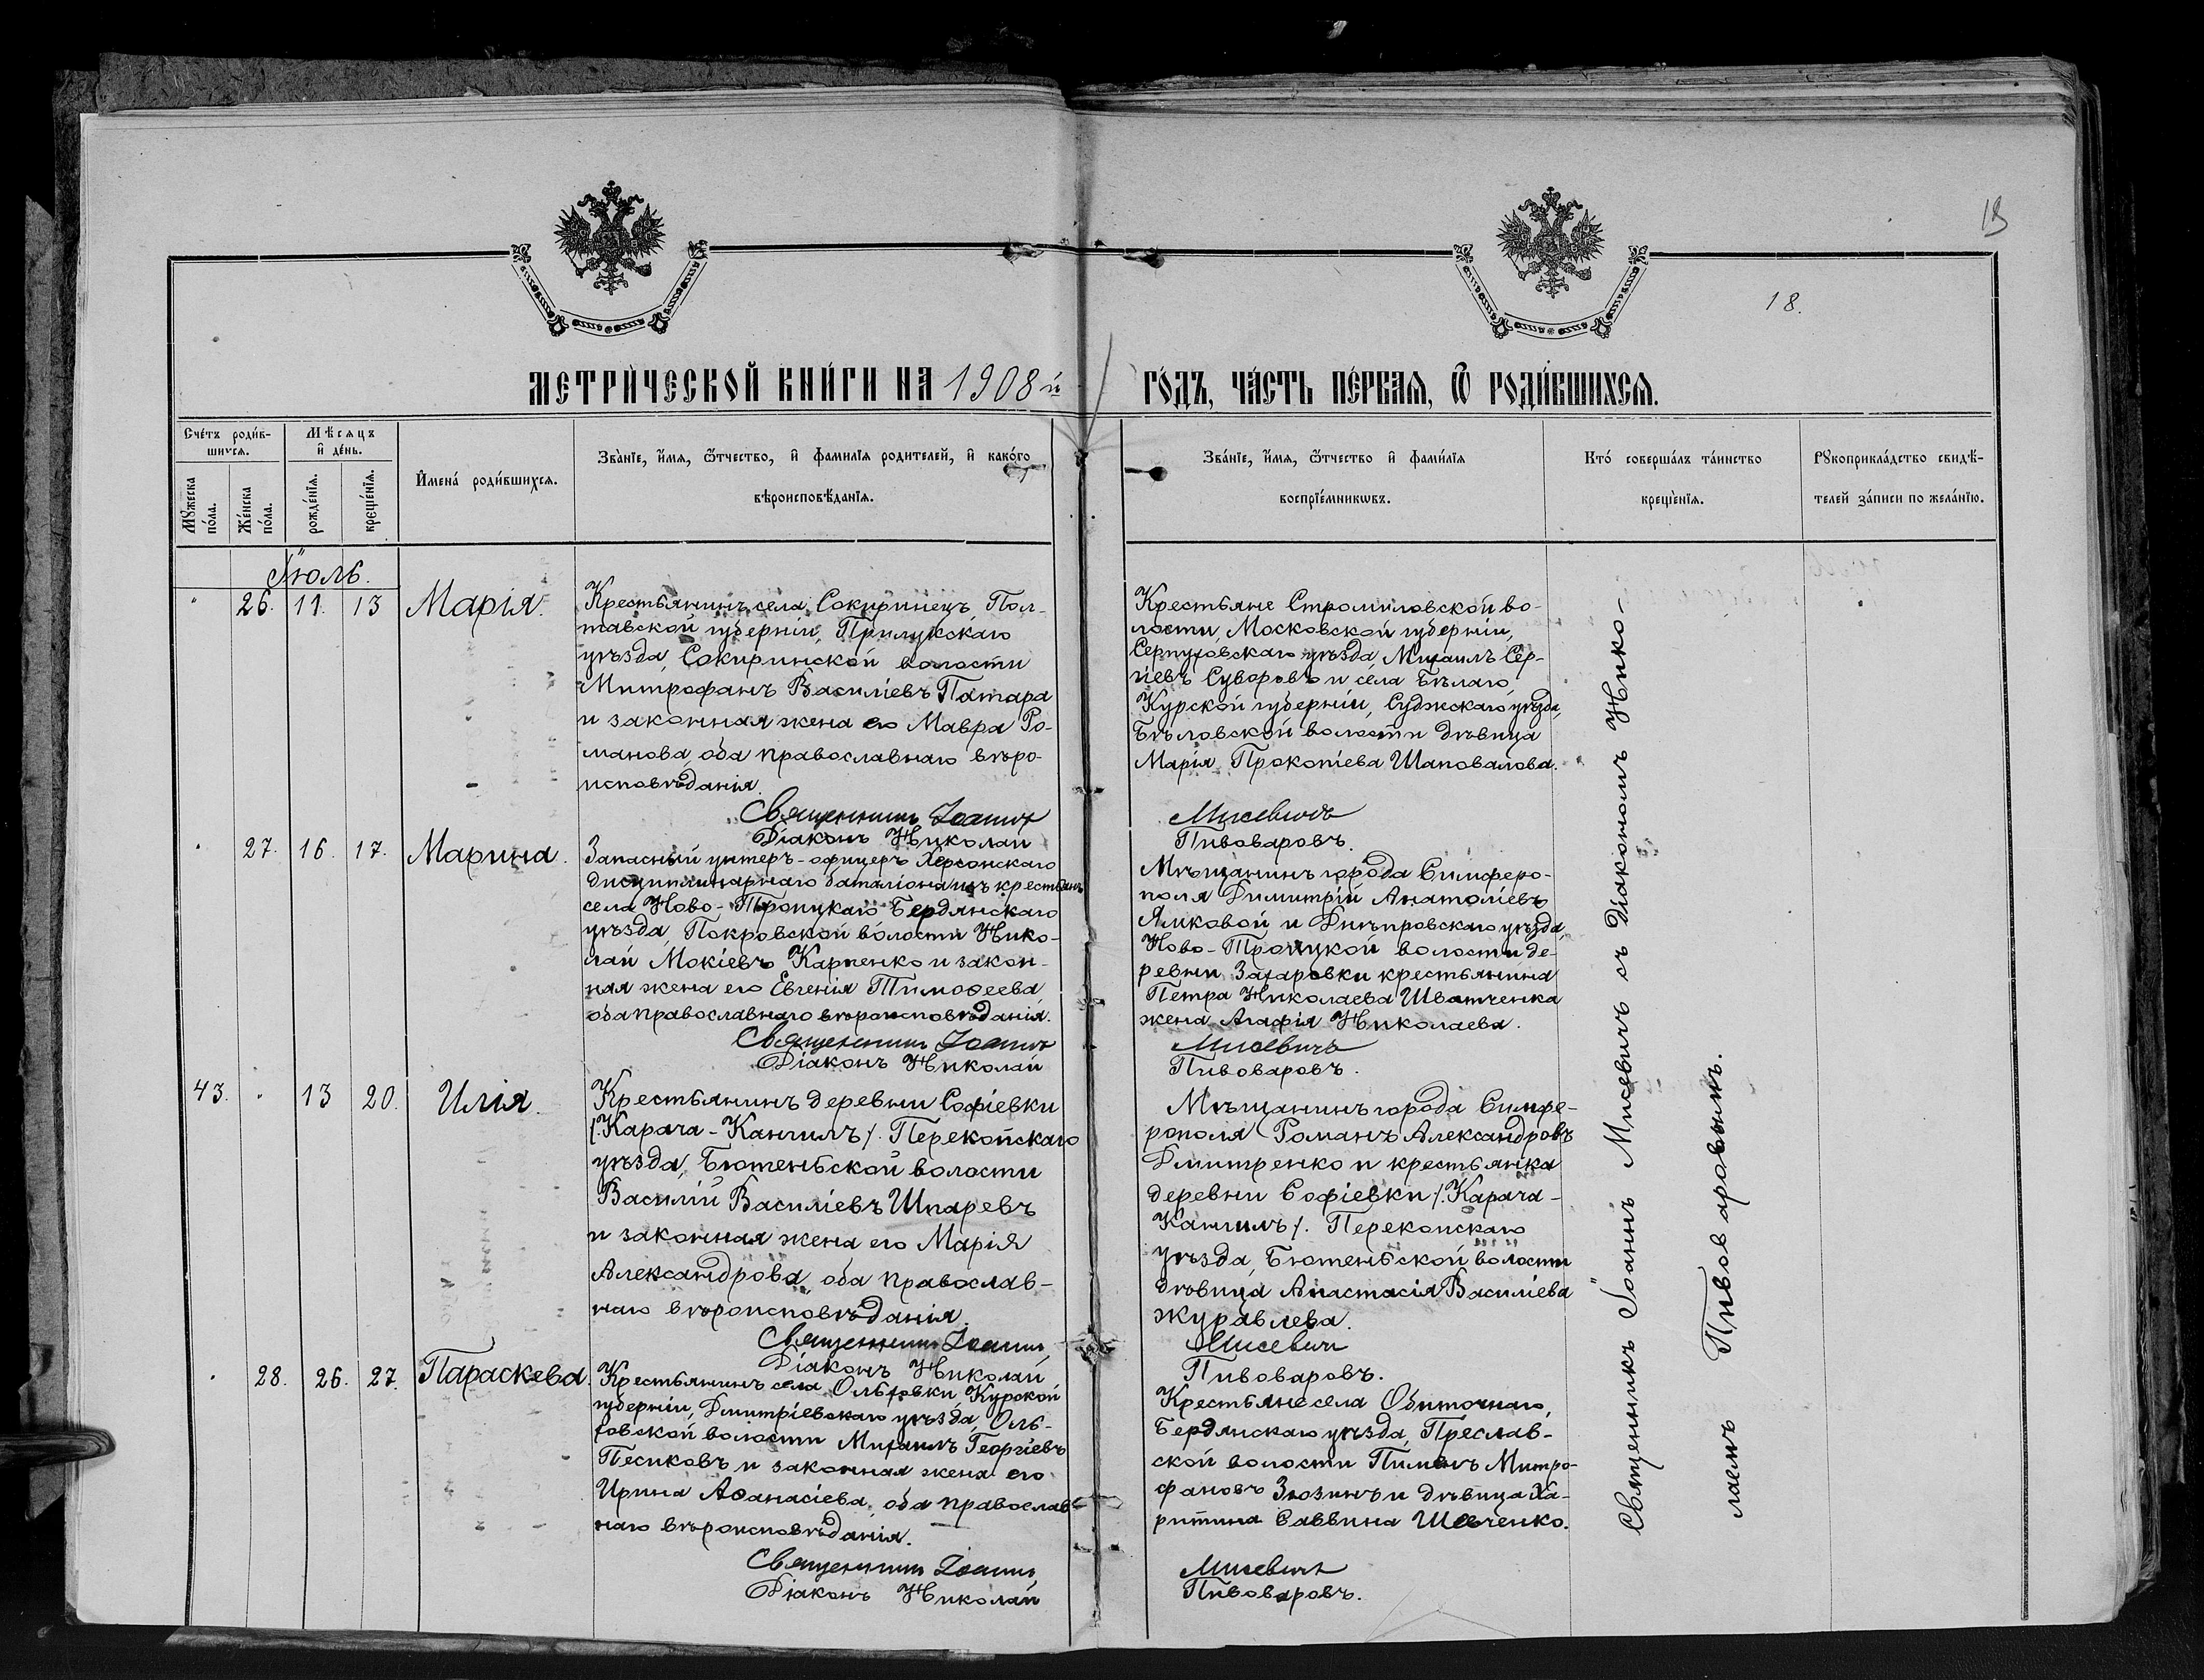 18
18.
МЕТРИЧЕСКОЙ КНИГИ НА 1908й ГОДЪ, ЧАСТЬ ПЕРВАЯ, Ѿ РОДИВШИХСЯ.
Счетъ родив-
шихся.
Мѣсяцъ
и день.
Имена родившихся.
Званіе, имя, ѿтчество, и фамилія родителей, и какого
вѣроисповѣданія.
Званіе, имя, ѿтчество и фамилія
воспріемниковъ.
Кто совершалъ таинство
крещенія.
Рукоприкладство свидѣ-
телей записи по желанію.
Мужеска
пола.
Женска
пола.
рожденія.
крещенія.
Іюль.
26. 11. 13 Марія.
Крестьянинъ села Сокиринецъ, Пол-
тавской губерніи, Прилукскаго
уѣзда, Сокиринской волости
Митрофанъ Василіевъ Патара
и законная жена его Мавра Ро-
манова, оба православнаго вѣро-
исповѣданія.
Священникъ Іоаннъ
Діаконъ Николай
Крестьяне Стромиловской во-
лости, Московской губерніи,
Серпуховскаго уѣзда, Михаилъ Сер-
гіевъ Суворовъ и села Бѣлаго,
Курской губерніи, Суджскаго уѣзда,
Бѣловской волости дѣвица
Марія Прокопіева Шаповалова.
Мисевичъ
Пивоваровъ.
27. 16. 17. Марина.
Запасный унтеръ-офицеръ Херсонскаго
дисциплинарнаго баталіона изъ крестьянъ
села Ново-Троицкаго Бердянскаго
уѣзда, Покровской волости Нико-
лай Мокіевъ Карпенко и закон-
ная жена его Евгенія Тимоѳеева,
оба православнаго вѣроисповѣданія.
Священникъ Іоаннъ
Діаконъ Николай
Мѣщанинъ города Симферо-
поля Димитрій Анатоліевъ
Яликовой и Днѣпровскаго уѣзда,
Ново-Троицкой волости де-
ревни Захаровки крестьянина
Петра Николаева Шватченка
жена Агафія Николаева.
Мисевичъ
Пивоваровъ.
43. 13 20. Илія.
Крестьянинъ деревни Софіевки
/.Карача-Кангилъ/. Перекопскаго
уѣзда, Бютеньской волости
Василій Василіевъ Шпаревъ
и законная жена его Марія
Александрова, оба православ-
наго вѣроисповѣданія.
Священникъ Іоаннъ
Діаконъ Николай
Мѣщанинъ города Симфе-
рополя Романъ Александровъ
Дмитренко и крестьянка
деревни Софіевки /.Карача-
Кангилъ/. Перекопскаго
уѣзда, Бютеньской волости
дѣвица Анастасія Василіева
Журавлева.
Мисевичъ
Пивоваровъ.
28. 26. 27. Параскева.
Крестьянинъ села Ольховки, Курской
губерніи, Дмитріевскаго уѣзда, Оль-
ховской волости Михаилъ Георгіевъ
Песиковъ и законная жена его
Ирина Аѳанасіева, оба православ-
наго вѣроисповѣданія.
Священникъ Іоаннъ
Діаконъ Николай
Крестьяне села Обиточнаго,
Бердянскаго уѣзда, Преслав-
ской волости Пименъ Митро-
фановъ Зюзинъ и дѣвица Ха-
ритина Саввина Шевченко.
Мисевичъ
Пивоваровъ.
Священникъ Іоаннъ Мисевичъ съ Діакономъ Нико-
лаемъ Пивоваровымъ.